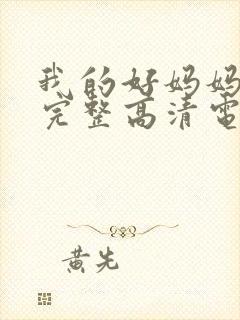 我的好妈妈
完整高清电
黄先